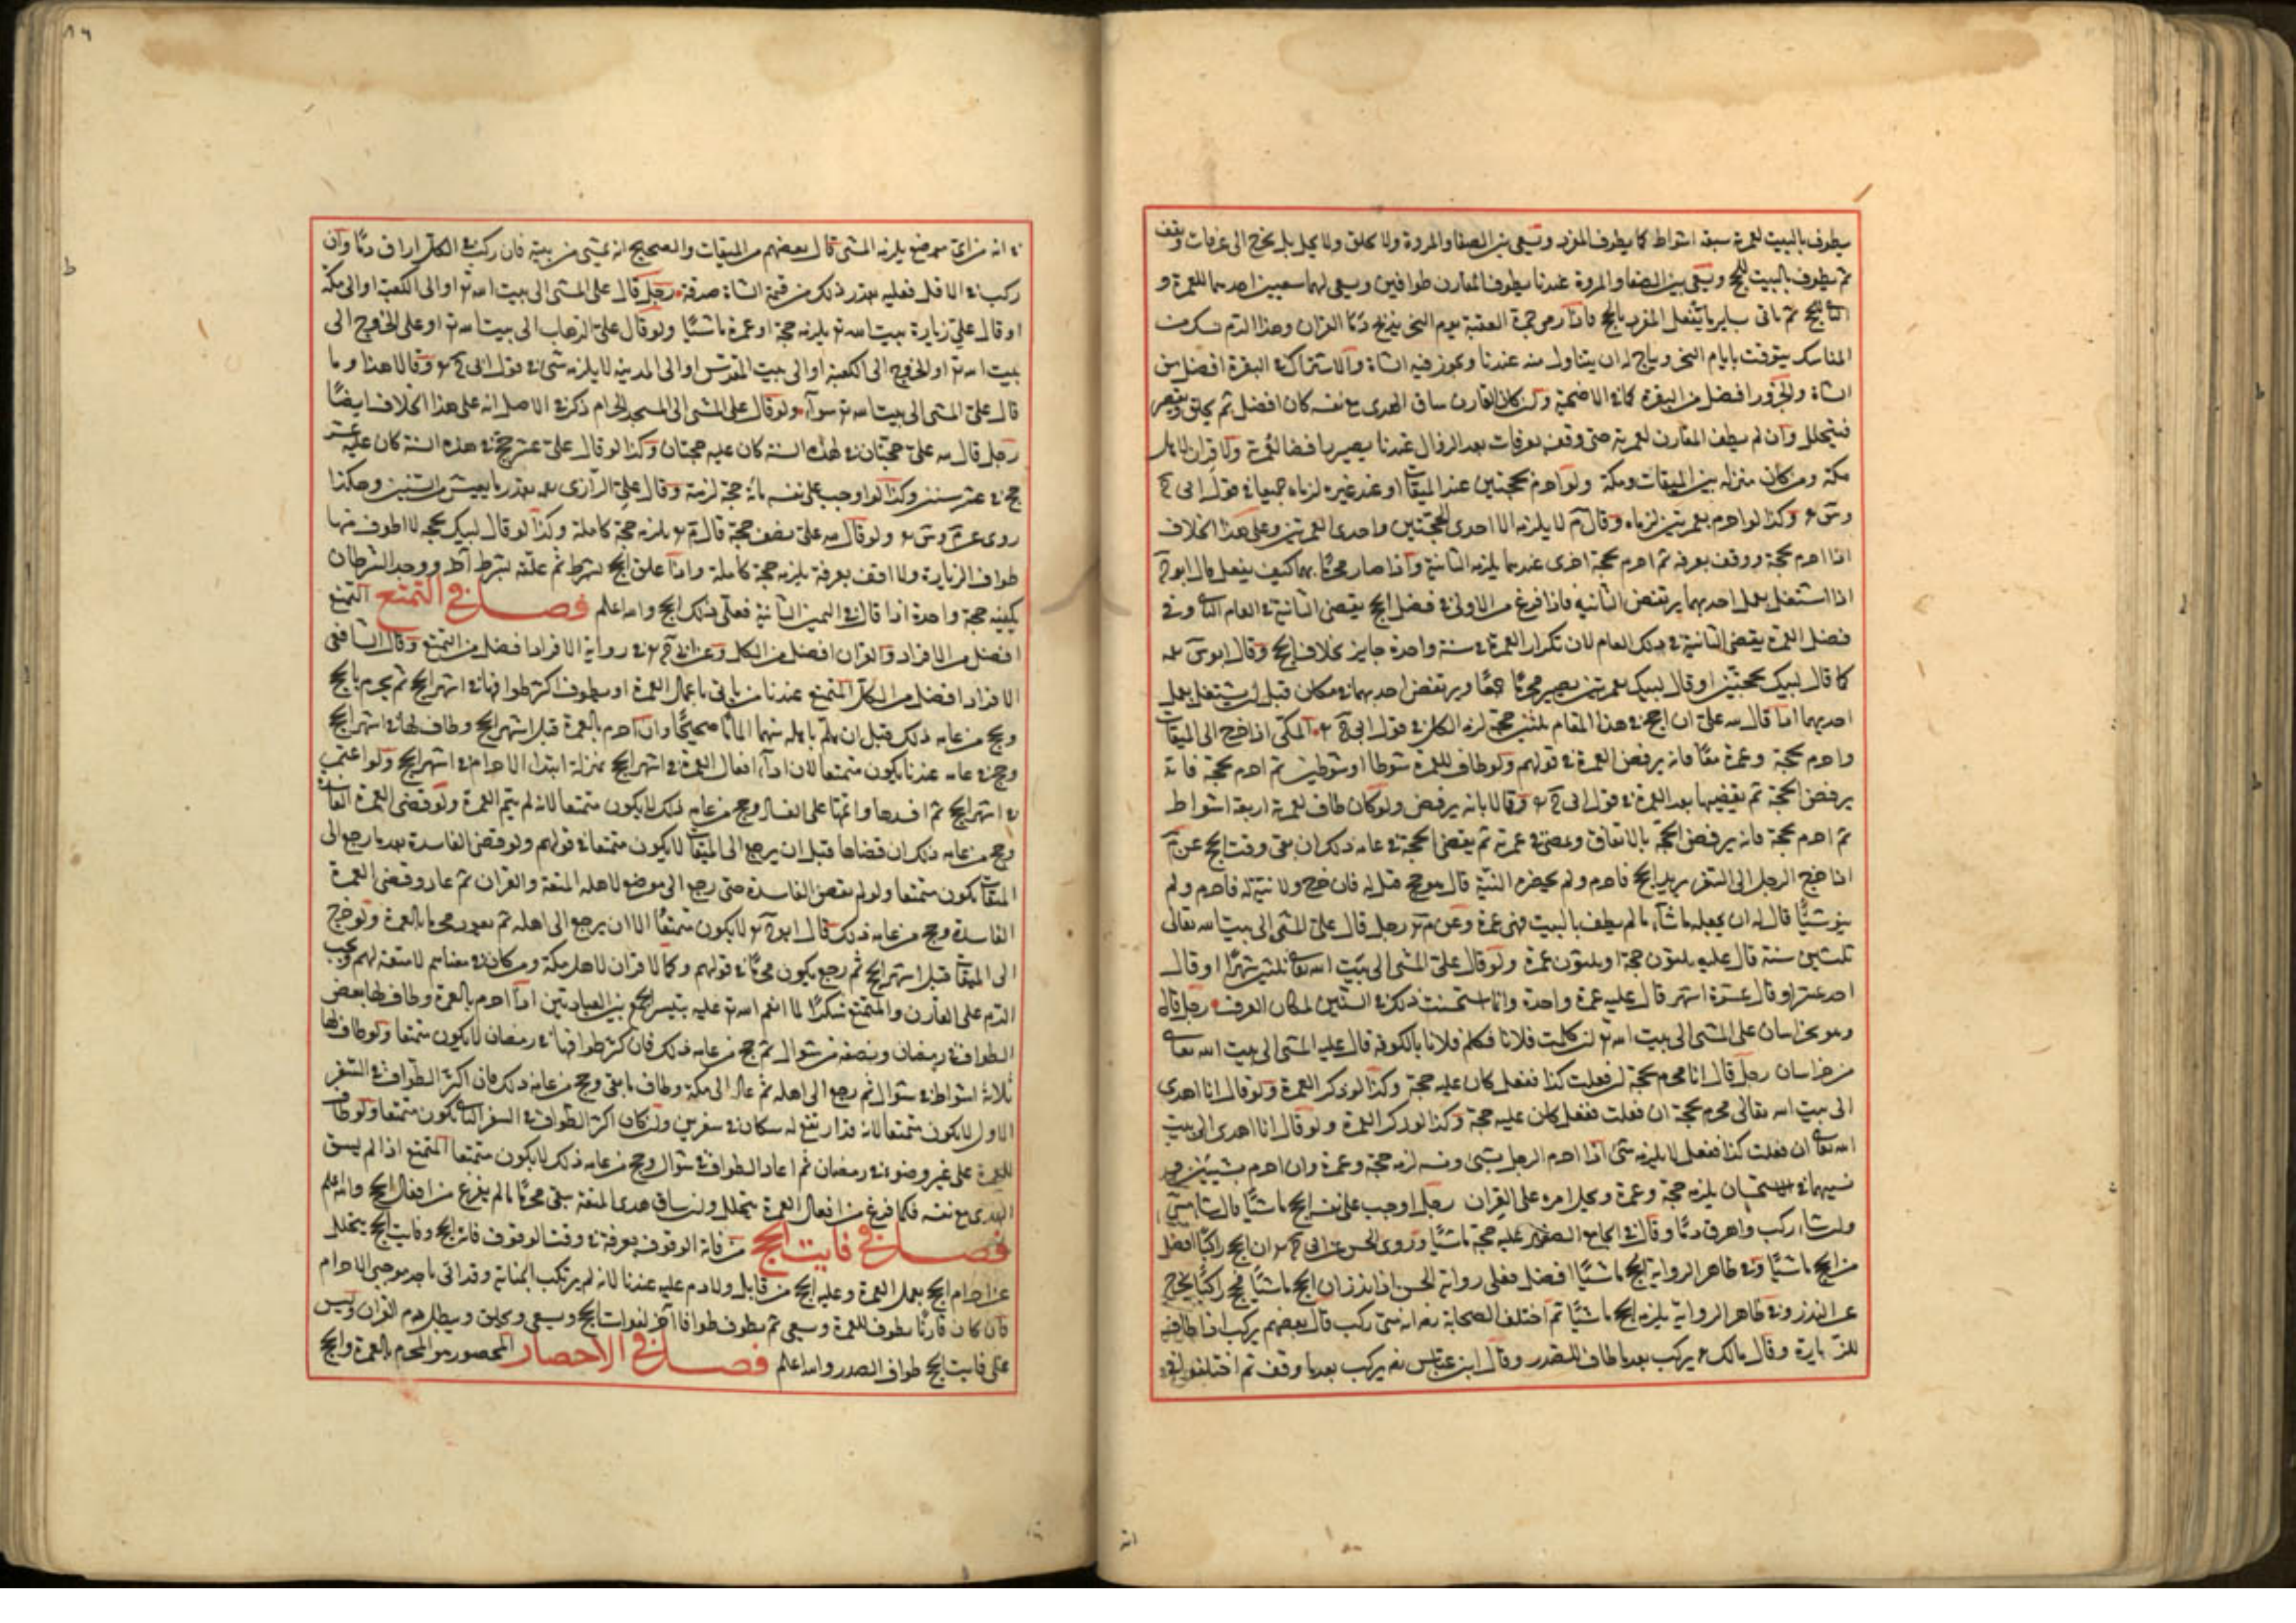 يطوف بالبيت لعمرته سبعة اشواط كما يطوف المفرد ويسعى بين الصفا والمروة ولا يحلق ولا يحل بل يخرج الى عرفات ويقف
ثم يطوف بالبيت للحج ويسعى بين الصفا والمروة عندنا يطوف القارن طوافين ويسعى لهما سعيين احدهما للعمرة و
الثاني للحج ثم ياتي بساير ما يفعل المفرد بالحج فاذا رمى جمرة العقبة يوم النحر يذبح دم القران وهذا الدم نسك من
المناسك يتوقت بايام النحر ويباح له ان يتناول منه عندنا ويجوز فيه الشاة والاشتراك في البقرة افضل من
الشاة والجزور افضل من البقرة كما في الاضحية ولو كان القارن ساق الهدى مع نفسه كان افضل ثم يحلق ويقصر
فيتحلل وان لم يطف القارن لعمرته حتى وقف بعرفات بعد الزوال عندنا يصير رافضا لعمرته ولا قران لاهل
مكة ومن كان منزله بين الميقات ومكة ولو احرم بحجتين عند الميقات او عند غيره لزماه جميعا في قول ابى ح
وس ر وكذا لو احرم بعمرتين لزماه وقال م لا يلزمه الا احدى الحجتين واحدى العمرتين وعلى هذا الخلاف
اذا احرم بحجة ووقف بعرفة ثم احرم بحجة اخرى عندهما يلزمه الثانية واذا صار محرما بهما كيف يفعل قال ابو ح
اذا اشتغل بعمل احديهما يرتفض الثانية فاذا فرغ من الاولى في فصل الحج يقضى الثانية في العام الثاني وفي
فصل العمرة يقضى الثانية في ذلك العام لان تكرار العمرة في سنة واحدة جايز بخلاف الحج وقال ابو س ر
كما قال لبيك بحجتين او قال لبيك بعمرتين يصير محرما بهما ويرتفض احديهما في مكان قبل ان يشتغل بعمل
احديهما اما قال لله على ان احج في هذا المقام ثلثين حجة لزمه الكل في قول ابى ح ر المكى اذا خرج الى الميقات
واحرم بحجة وعمرة معا فانه يرفض العمرة في قولهم ولو طاف للعمرة شوطا او شوطين ثم احرم بحجة فانه
يرفض الحجة ثم يقضيها بعد العمرة في قول ابى ح ر وقالا بانه يرفض ولو كان طاف لعمرته اربعة اشواط
ثم احرم بحجة فانه يرفض الحجة بالاتفاق ويمضى في عمرته ثم يقضى الحجة في عامه ذلك ان بقى وقت الحج عن م
اذا خرج الرجل الى السفر يريد الحج فاحرم ولم يحضره النية قال هو حج قيل له فان خرج ولا نية له فاحرم ولم
ينو شيئا قال له ان يجعله ما شاء ما لم يطف بالبيت فهى عمرة وعن م ر رجل قال على المشى الى بيت الله تعالى
ثلثين سنة قال عليه ثلثون حجة او ثلثون عمرة ولو قال على المشى الى بيت الله تعالى ثلثين شهرا او قال
احد عشر او قال عشرة اشهر قال عليه عمرة واحدة وانا استحسنت ذلك في السنين لمكان العرف رجل قال
وهو بخراسان على المشى الى بيت الله تع ان كلمت فلانا فكلم فلانا بالكوفة قال عليه المشى الى بيت الله تعالى
من خراسان رجل قال انا محرم بحجة ان فعلت كذا ففعل كان عليه حجة وكذا لو ذكر العمرة ولو قال انا اهدى
الى بيت الله تعالى محرم بحجة ان فعلت ففعل كان عليه حجة وكذا لو ذكر العمرة ولو قال انا اهدى الى بيت
الله تعالى ان فعلت كذا ففعل لا يلزمه شئ اذا احرم الرجل بشئ ونسيه لزمه حجة وعمرة وان احرم بشيئين و
نسيهما في الاستحسان يلزمه حجة وعمرة ويحمل امره على القران رجل اوجب على نفسه الحج ماشيا فان شاء مشى
وان شاء ركب واهرق دما وقال في الجامع الصغير عليه حجة ماشيا وروى الحسن عن ابى ح ر ان الحج راكبا افضل
من الحج ماشيا وفي ظاهر الرواية الحج ماشيا افضل فعلى رواية الحسن اذا نذر ان يحج ماشيا فحج راكبا يخرج
عن النذر وفي ظاهر الرواية يلزمه الحج ماشيا ثم اختلف الصحابة رض انه متى ركب قال بعضهم يركب اذا طاف
للزيارة وقال مالك ر يركب بعد ما طاف للصدر وقال ابن عباس رض يركب بعد ما وقف ثم اختلفوا في
في انه من اى موضع يلزمه المشى قال بعضهم من الميقات والصحيح انه يمشى من بيته فان ركب في الكل اراق دما وان
ركب في الاقل فعليه بقدر ذلك من قيمة الشاة صدقة رجل قال على المشى الى بيت الله تع او الى الكعبة او الى مكة
او قال على زيارة بيت الله تع يلزمه حجة او عمرة ماشيا ولو قال على الذهاب الى بيت الله تع او على الخروج الى
بيت الله تع او الخروج الى الكعبة او الى بيت المقدس او الى المدينة لا يلزمه شئ في قول ابى ح ر وقالا هذا وما
قال على المشى الى بيت الله تع سواء ولو قال على المشى الى المسجد الحرام ذكر في الاصل انه على هذا الخلاف ايضا
رجل قال لله على حجتان في هذه السنة كان عليه حجتان وكذا لو قال على عشر حجج في هذه السنة كان عليه عشر
حجج في عشر سنين وكذا لو اوجب على نفسه مائة حجة لزمته وقال على الرازى ر بقدر ما يعيش من السنين وهكذا
روى عن م وس ر ولو قال لله على نصف حجة قال م ر يلزمه حجة كاملة وكذا لو قال لبيك بحجة لا اطوف منها
طواف الزيارة ولا اقف بعرفة يلزمه حجة كاملة واذا علق الحج بشرط ثم علقه بشرط آخر ووجد الشرطان
يكفيه حجة واحدة اذا قال في اليمين الثانية فعلى ذلك الحج والله اعلم فصل في التمتع التمتع
افضل من الافراد والقران افضل من الكل وعن ابى ح ر في رواية الافراد افضل من التمتع وقال الشافعى
الافراد افضل من الكل المتمتع عندنا من ياتى باعمال العمرة او يطوف اكثر طوافها في اشهر الحج ثم يحرم بالحج
ويحج من عامه ذلك قبل ان يلم باهله بينهما الماما صحيحا وان احرم بالعمرة قبل اشهر الحج وطاف لها في اشهر الحج
وحج في عامه عندنا يكون متمتعا لان اداء افعال العمرة في اشهر الحج بمنزلة ابتداء الاحرام في اشهر الحج ولو اعتمر
في اشهر الحج ثم افسدها واتمها على الفساد وحج من عامه ذلك لا يكون متمتعا لانه لم يتم العمرة ولو قضى العمرة الفاسدة
وحج من عامه ذلك ان قضاها قبل ان يرجع الى الميقات لا يكون متمتعا في قولهم ولو قضى الفاسدة بعد ما رجع الى
الميقات يكون متمتعا ولو لم يقض الفاسدة حتى رجع الى موضع لاهله المتعة والقران ثم عاد وقضى العمرة
الفاسدة وحج من عامه ذلك قال ابو ح ر لا يكون متمتعا الا ان يرجع الى اهله ثم يعود محرما بالعمرة ولو خرج
الى الميقات قبل اشهر الحج ثم رجع يكون محرما في قولهم وكما لا قران لاهل مكة ومن كان في معناهم لا متعة لهم ويجب
الدم على القارن والمتمتع شكرا لما انعم الله تع عليه بتيسير الجمع بين العبادتين اذا احرم بالعمرة وطاف لها بعض
الطواف في رمضان وبعضه في شوال ثم حج من عامه ذلك فان كان اكثر طوافها في رمضان لا يكون متمتعا ولو طاف لها
ثلاثة اشواط في شوال ثم رجع الى اهله ثم عاد الى مكة وطاف ما بقى وحج من عامه ذلك فان اكثر الطواف في السفر
الاول لا يكون متمتعا لانه كان في سفرين وان كان اكثر الطواف في السفر الثاني يكون متمتعا ولو طاف
للعمرة على غير وضوء في رمضان ثم اعاد الطواف في شوال وحج من عامه ذلك لا يكون متمتعا المتمتع اذا لم يسق
الهدى مع نفسه فكما فرغ من افعال العمرة يتحلل وان ساق هدى المتعة بقى محرما ما لم يفرغ من افعال الحج والله اعلم
فصل في فايت الحج من فاته الوقوف بعرفة في وقت الوقوف فاته الحج وفايت الحج يتحلل
عن احرام الحج بعمل العمرة وعليه الحج من قابل ولا دم عليه عندنا لانه لم يرتكب الجناية وقد اتى باحد موجبى الاحرام
فان كان قارنا يطوف للعمرة ويسعى ثم يطوف طوافا آخر لفوات الحج ويسعى ويحلق ويبطل دم القران وليس
على فايت الحج طواف الصدر والله اعلم فصل في الاحصار المحصور هو المحرم بالعمرة والحج